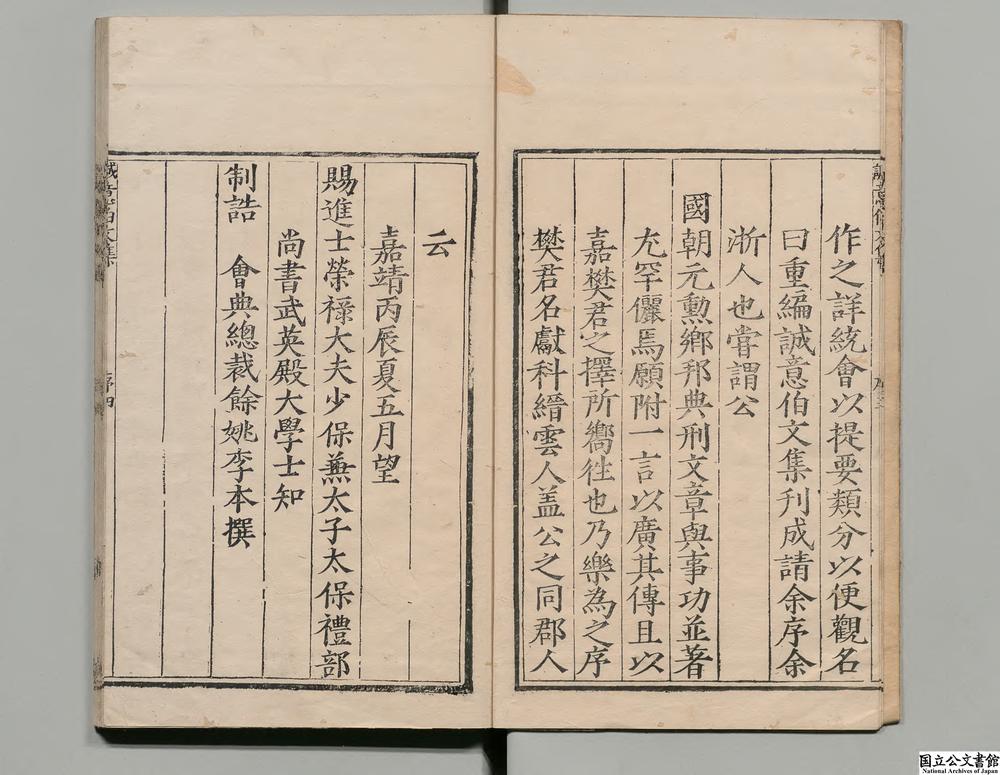 作之詳統會以提要類分以便觀名
曰重編誠意伯文集刊成請余序余
浙人也嘗謂公
國朝元勳鄉邦典刑文章與事功並著
尤罕儷焉願附一言以廣其傳且以
嘉樊君之擇所嚮徃也乃樂為之序
樊君名獻科縉雲人盖公之同郡人
云
嘉靖丙辰夏五月望
賜進士榮祿大夫少保蕪太子太保禮部
尚書武英殿大學士知
制誥 會典總裁餘姚李本撰
序四
国立公文書館
National Archives of Japan